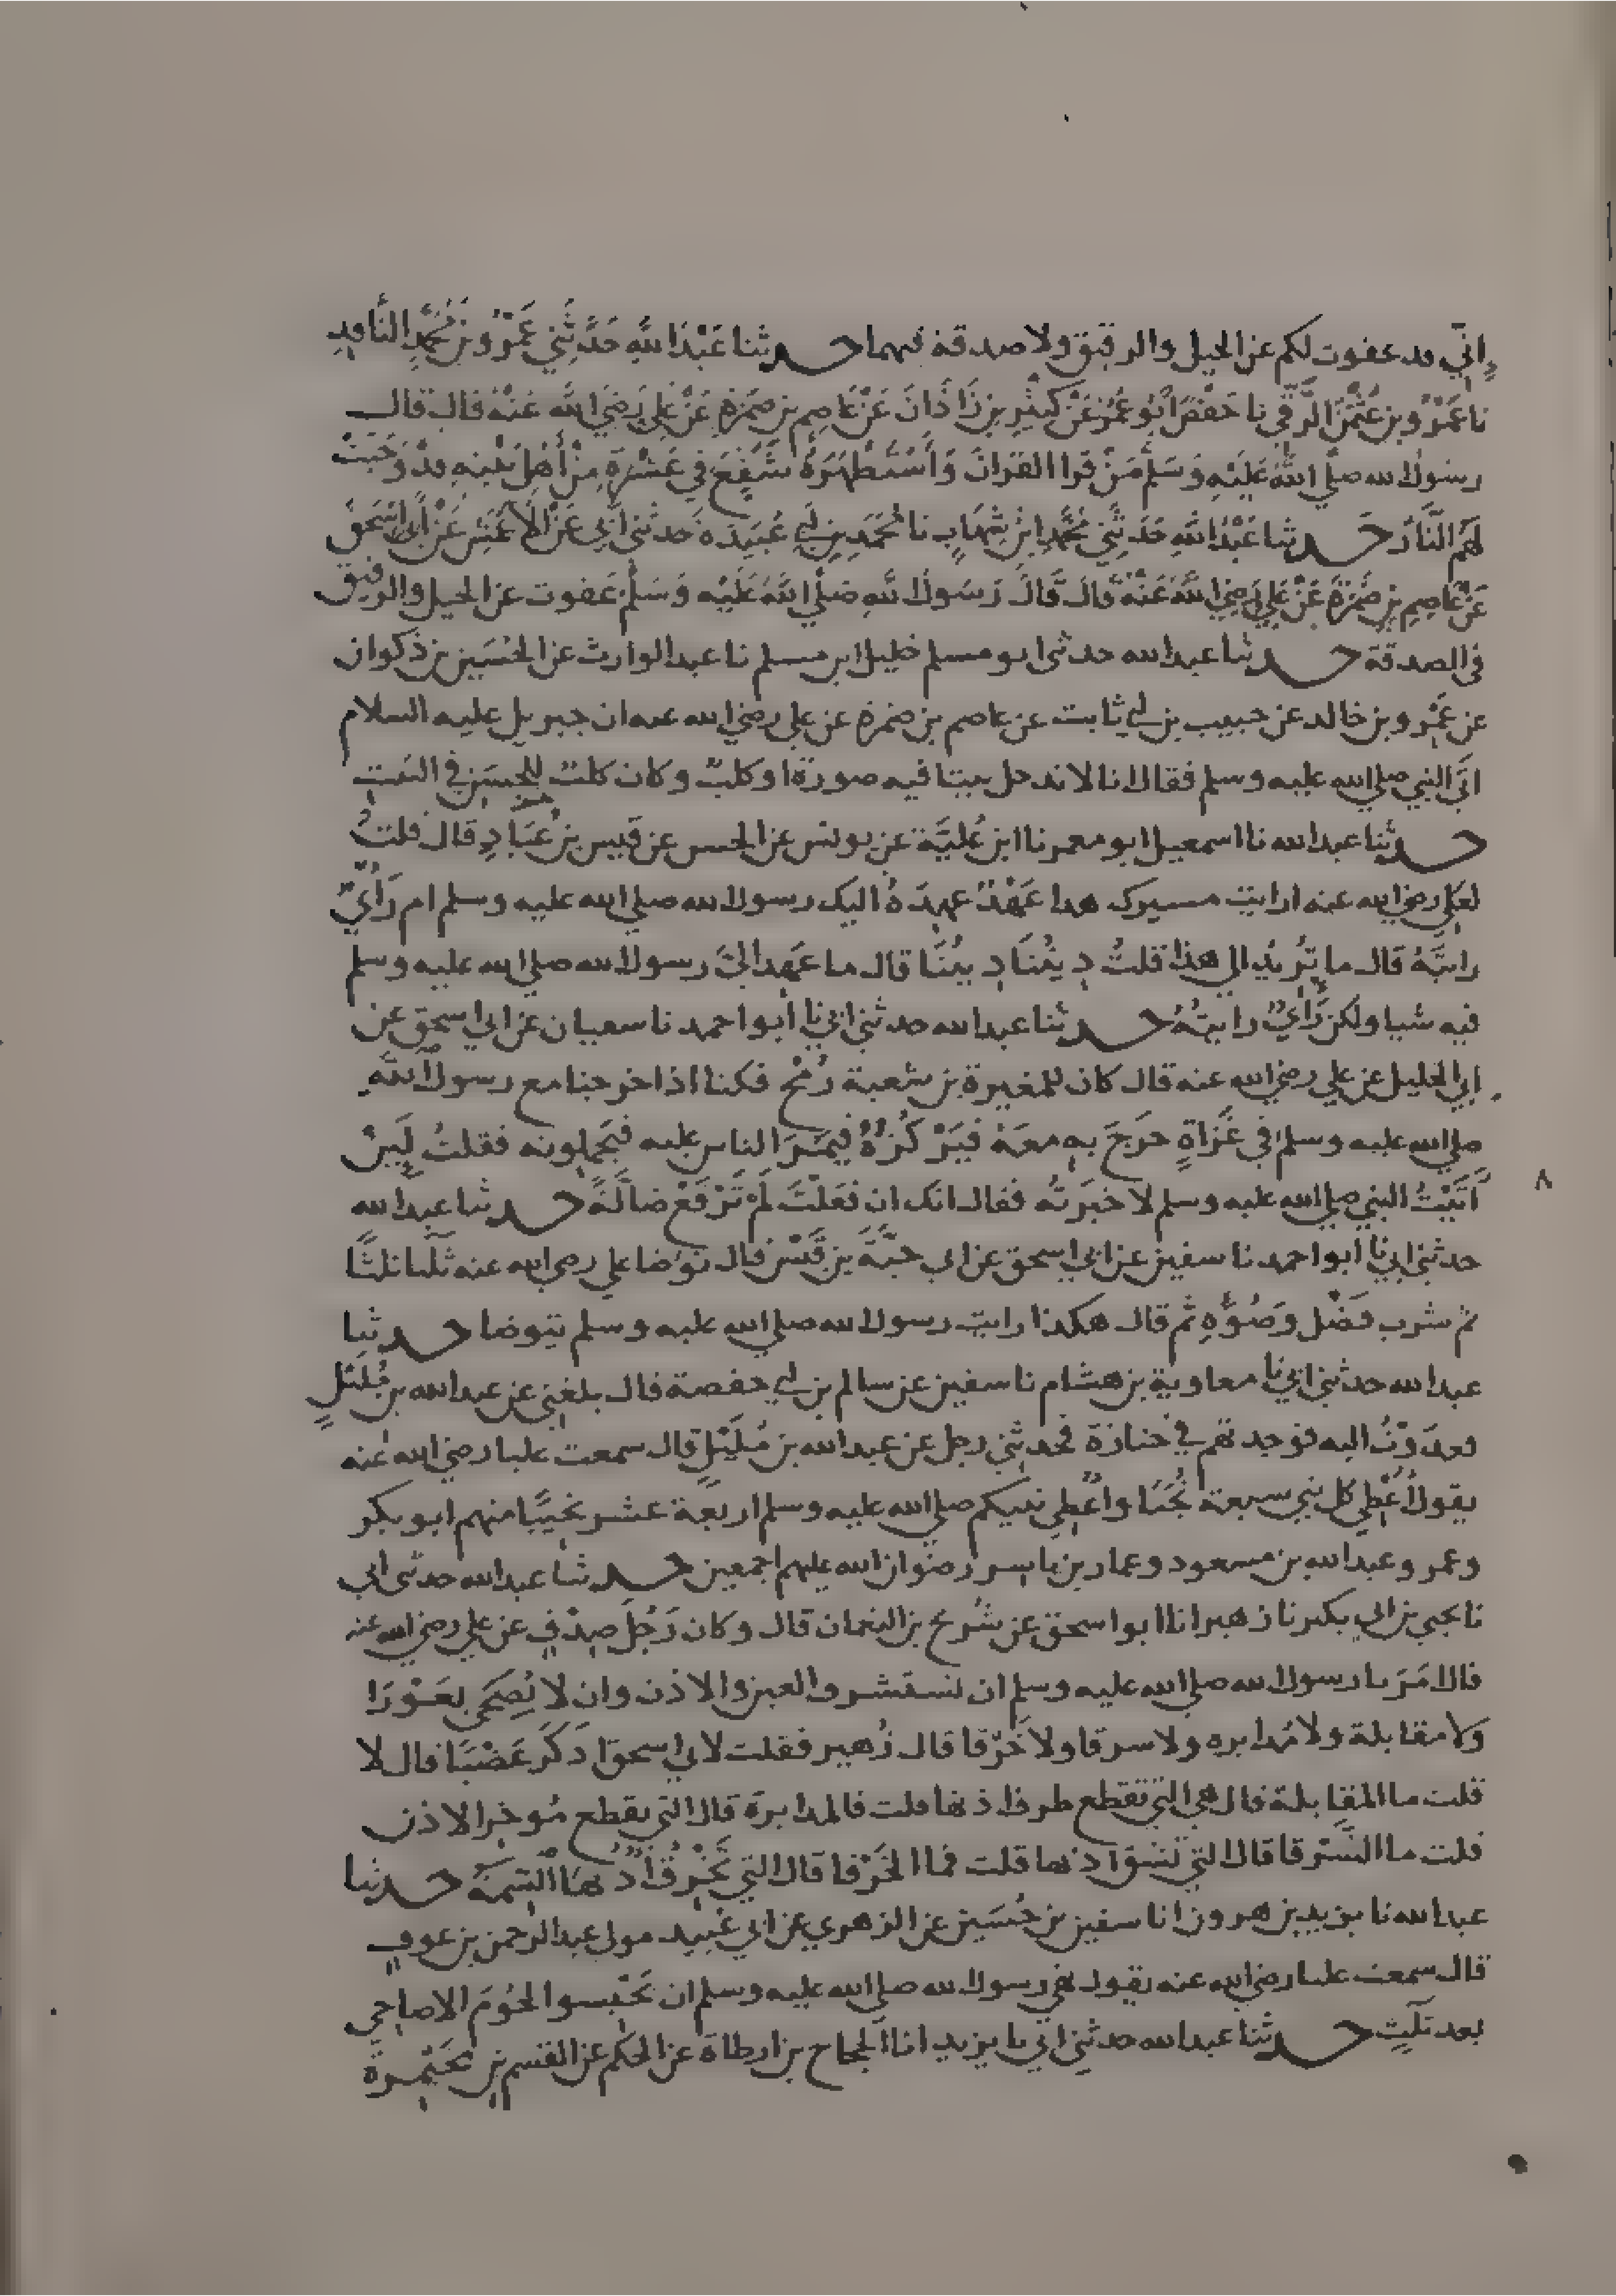 إني قد عفوت لكم عن الخيل والرقيق ولا صدقة فيهما حدثنا عَبْدُ اللهِ حَدَّثَنِي عَمْرُو بْنُ مُحَمَّدٍ النَّاقِدِ
نا عَمْرُو بن عُثْمٰنَ الرَّقِّي نا حَفْصٌ أَبُو عُمَرَ عَنْ كَثِيرِ بن زَاذَانَ عَنْ عَاصِمِ بن ضَمْرَةَ عَنْ عَلِي رَضِيَ اللهُ عَنْهُ قال قال
رسول الله صلى اللهُ عَلَيْهِ وَسَلَّمَ مَنْ قرا القرانَ وَاسْتَظْهَرَهُ شُفِّعَ فِي عَشْرَةٍ مِنْ أَهْلِ بَيْتِهِ قدْ وَجَبَتْ
لهم النَّارُ حَدثنا عَبْدُ اللهِ حَدَّثَنِي مُحَمَّدُ ابْنُ شِهَابٍ نا مُحَمَدُ بن أبي عُبَيدَةَ حَدثني أَبِي عَنْ الأَعْمَشِ عَنْ أَبِي إِسْحَقَ
عَنْ عَاصِمِ بن ضَمْرَةَ عَنْ عَلِيٍّ رَضِيَ اللهُ عَنْهُ قَالَ قَالَ رَسُولُ اللهِ صَلَّى اللهُ عَلَيْهِ وَسَلَّمَ عَفوت عن الخيل والرقيق
في الصدقة حدثنا عبد الله حدثني ابو مسلم خليل ابن مسلم نا عبد الوارث عن الحُسَيْنِ بن ذكوان
عن عَمْرو بن خالد عن حبيب بن أبي ثابت عن عاصم بن ضمرة عن علي رضي الله عنه ان جبريل عليه السلام
اتَى النبي صلى الله عليه وسلم فقال انا لا ندخل بيتا فيه صورة او كلبٌ وكان كلبٌ للحسن في البيت
حدثنا عبد الله نا اسمعيل ابو معمر نا ابن عُلَيَّة عن يونس عن الحسن عن قيس بن عُبَادٍ قال قلتُ
لعلي رضي الله عنه ارايت مسيرك هذا عَهْدٌ عهِدَهُ اليك رسول الله صلى الله عليه وسلم ام رَأْيٌ
رايتَهُ قال ما تُرِيدُ الى هذا قلتُ دِينُنَا دِينُنَا قال ما عَهِد الَيَّ رسول الله صلى الله عليه وسلم
فيه شيا ولكن رَأيٌ رايتُهُ حدثنا عبد الله حدثني ابي نا أبو احمد نا سفيان عن ابي اسحق عن
ابي الخليل عن علي رضي الله عنه قال كان للمغيرة بن شعبة رُمْحٌ فكنا اذا خرجنا مع رسول الله
صلى الله عليه وسلم في غَزَاةٍ خرَجَ بِهِ معَهُ فيَرْكُزُهُ فيمُرَّ الناس عليه فيَحملونه فقلتُ لَئِنْ
أَتَيْتُ النبي صلى الله عليه وسلم لاخبرته فقال انك ان فَعَلْتَ لَمْ تَرْفَعْ ضالَّةً حدثنا عبد الله
حدثني ابي نا أبو احمد نا سفين عن ابي اسحق عن ابي حيَّةَ بن قَيْسٍ قال توَضا علي رضي الله عنه ثلثا ثلثًا
ثم شرب فَضْلَ وَضُوْئِهِ ثُم قال هكذا رايت رسول الله صلى الله عليه وسلم يتوضا حدثنا
عبد الله حدثني ابي نا معاوية بن هشام نا سفين عن سالم بن أبي حفصة قال بلغني عن عبد الله بن مُلَيْلٍ
فغدَوْتُ اليه فوجدتهم في جنازة فحدثني رجل عن عبد الله بن مُلَيْلٍ قال سمعت عليا رضي الله عنه
يقول أُعْطِيَ كل نبي سبعة نُجَبَا واُعْطِيَ نبيكم صلى الله عليه وسلم اربعَة عشر نجِيبًا منهم ابو بكر
وعمر وعبد الله بن مسعود وعمار بن ياسر رضوان الله عليهم اجمعين حدثنا عبد الله حدثني ابي
نا يحيى بن ابي بكير نا زهير انا ابو اسحق عن شُريح بن النعمان قال وكان رَجُلَ صِدْقٍ عن علي رضي الله عنه
قال امَرَنا رسول الله صلى الله عليه وسلم ان نستشرف العين والاذن وان لا نُضَحِّي بعَوْرَا
ولا مقابلة ولا مُدابره ولا شرقا ولا خَرْقا قال زُهير فقلت لابي اسحق اذَكَر عَضْبَا قال لا
قلت ما المقابلة قال هي التي تقطع طرف اذنها قلت فالمدابرة قال التي يقطع مُوخر الاذن
قلت ما الشَّرقا قال التي تُشَق اذنها قلت فما الخَرْقا قال التي تَخْرِقُ أُذُنَهَا السِّمَةُ حدثنا
عبد الله نا يزيد بن هرون انا سفين بن حُسَين عن الزهري عن ابي عُبيد مولى عبد الرحمن بن عوفٍ
قال سمعت عليا رضي الله عنه يقول نهى رسول الله صلى الله عليه وسلم ان تَحْبِسوا لحُوْمَ الاضاحي
بعد ثَلثٍ حدثنا عبد الله حدثني ابي نا يزيد انا الحجاج بن ارطاة عن الحكم عن القسم بن مُخَيْمِرة
٨